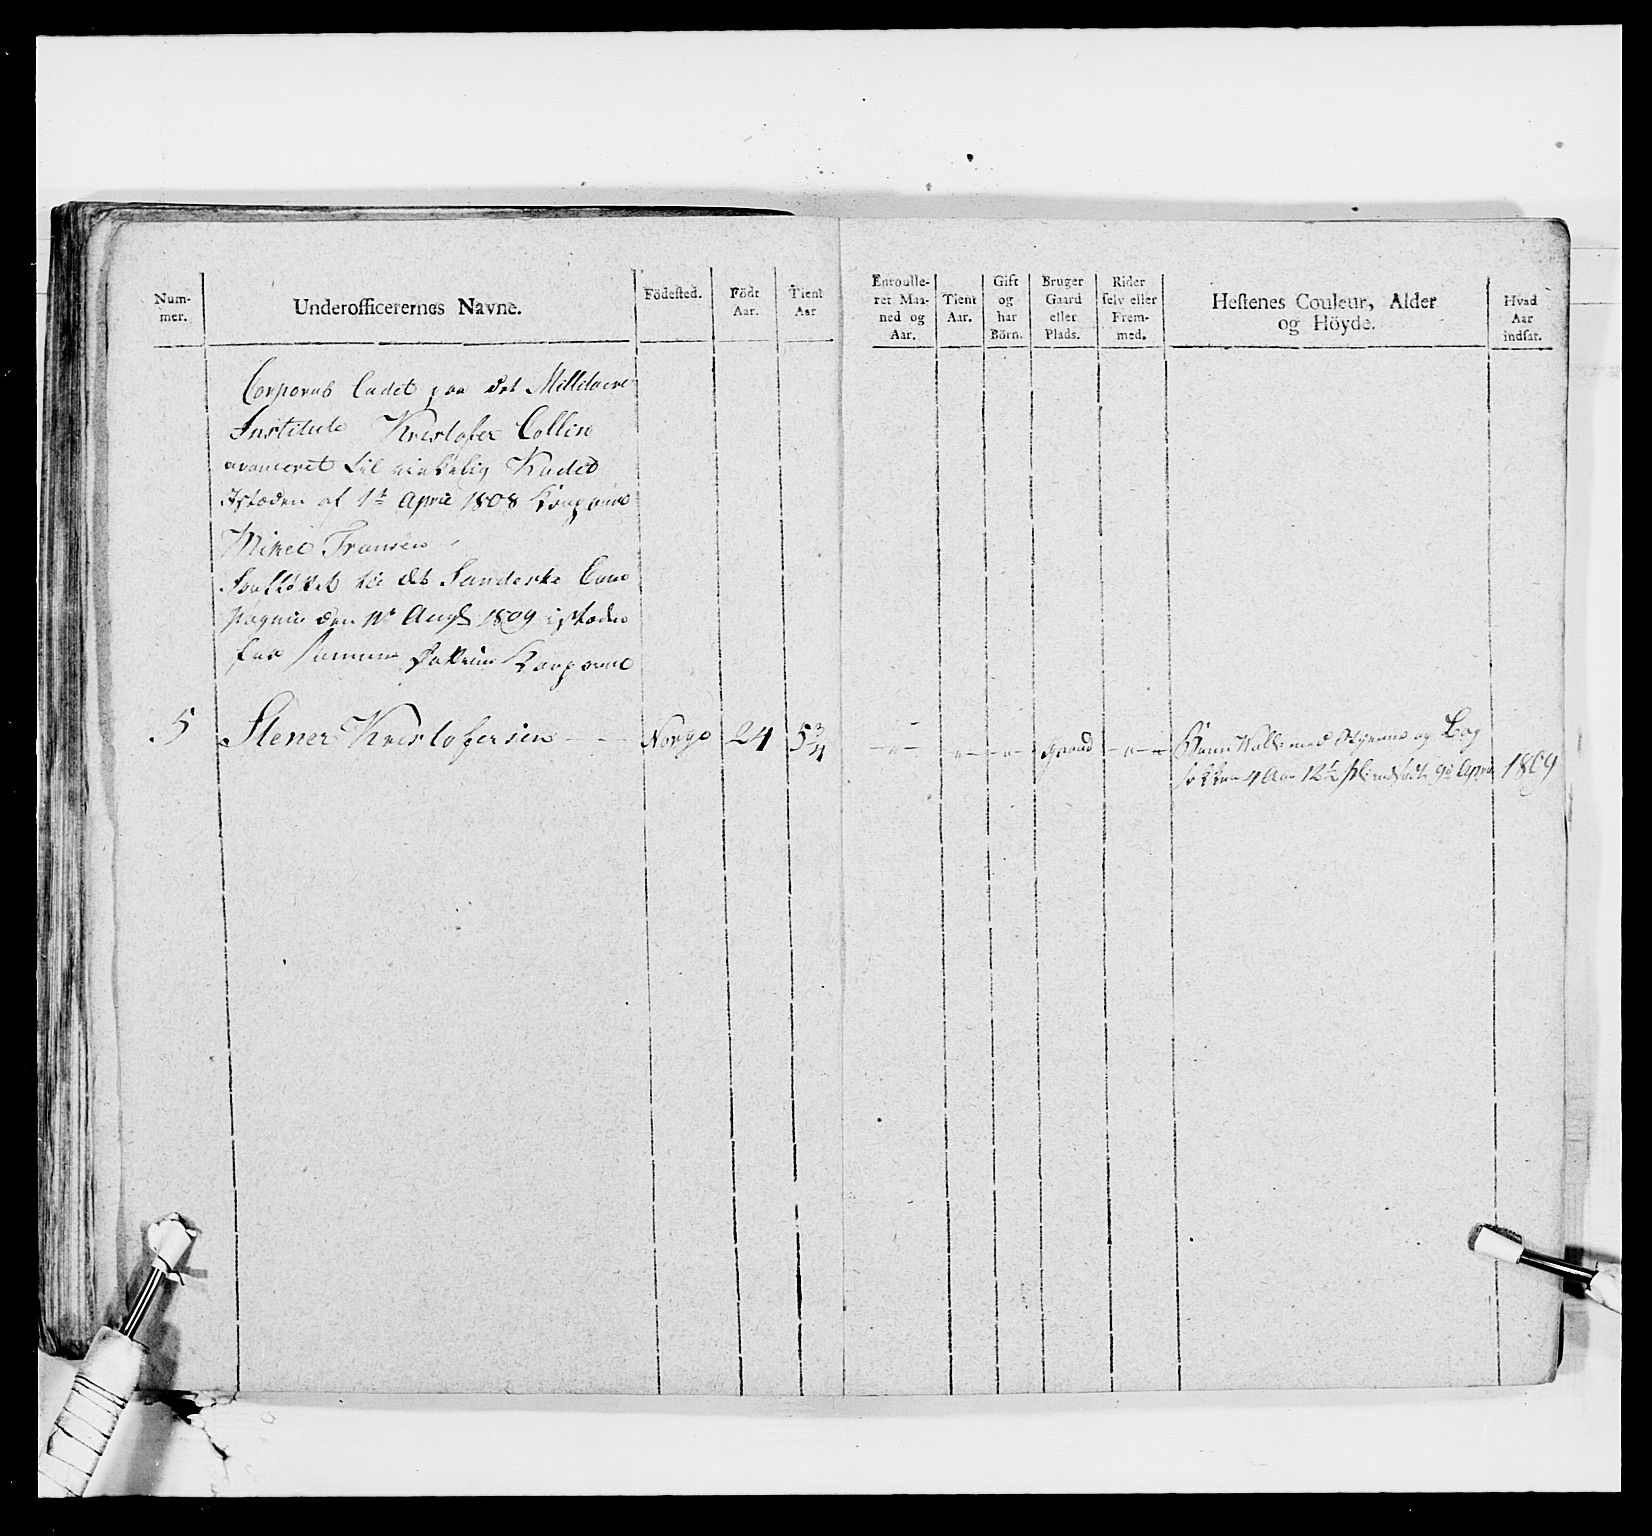 Num-
mer.
Underofficerernes Navne.
Födested.
Födt
Aar.
Tient
Aar
Enroulle-
ret Maa-
ned og
Aar.
Tient
Aar.
Gift
og
har
Börn.
Bruger
Gaard
eller
Plads.
Rider
selv eller
Frem-
med.
Hestenes Couleur, Alder
og Höyde.
Hvad
Aar
indsat.
Corporals Cadet paa det Millitaire
Institute Kristofer Collin
avanceret til virkelig Kadet
Istæden af 1te April 1808
Mikel Fransen
til det Landeske Com
pagnie den 1te Augst 1809 istæden
for
5 Stener Kristofersen Norge 24 5 3/4 - " - - " - - " - gaard - " - Brun med og
4 Aar 12 1/2 April 1809